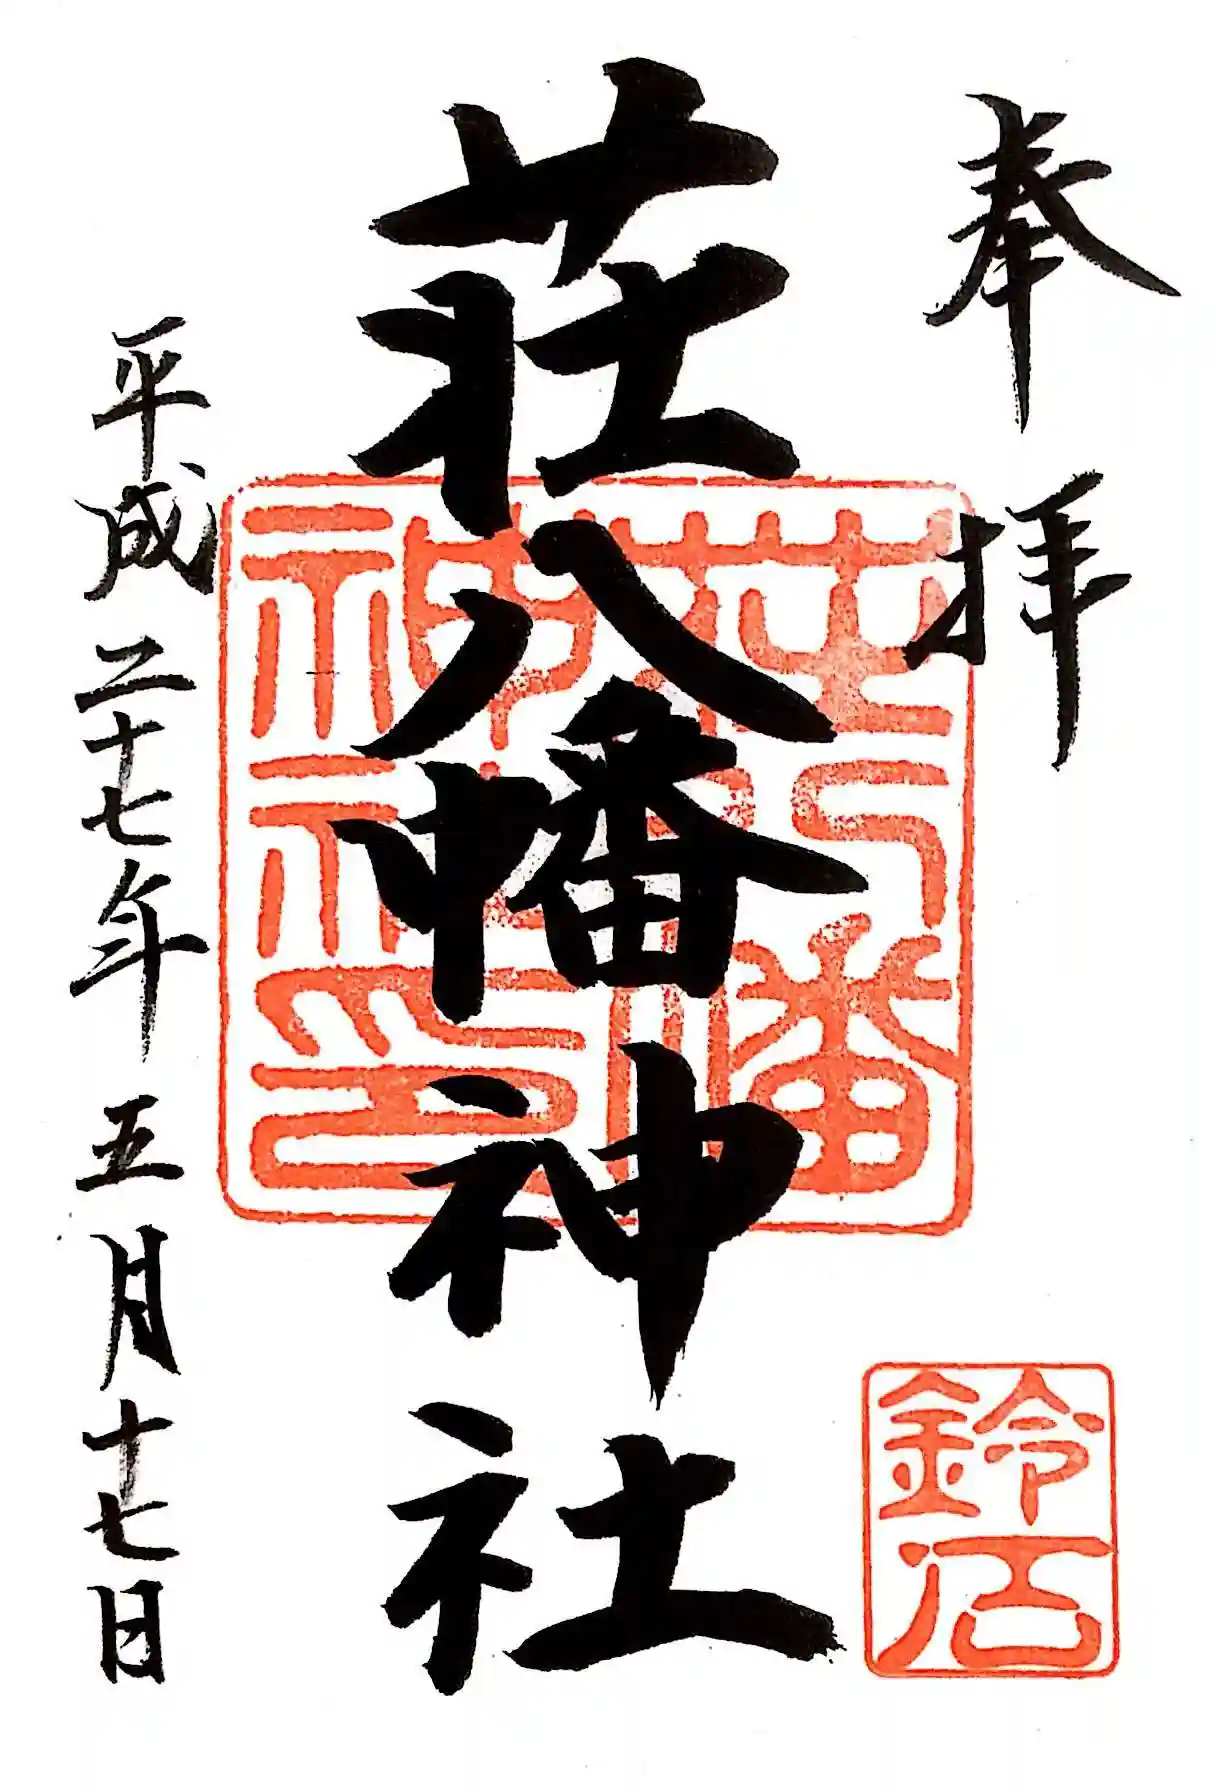 奉拝
荘八幡神社
荘八幡
神社印
鈴石
平成二十七年五月十七日